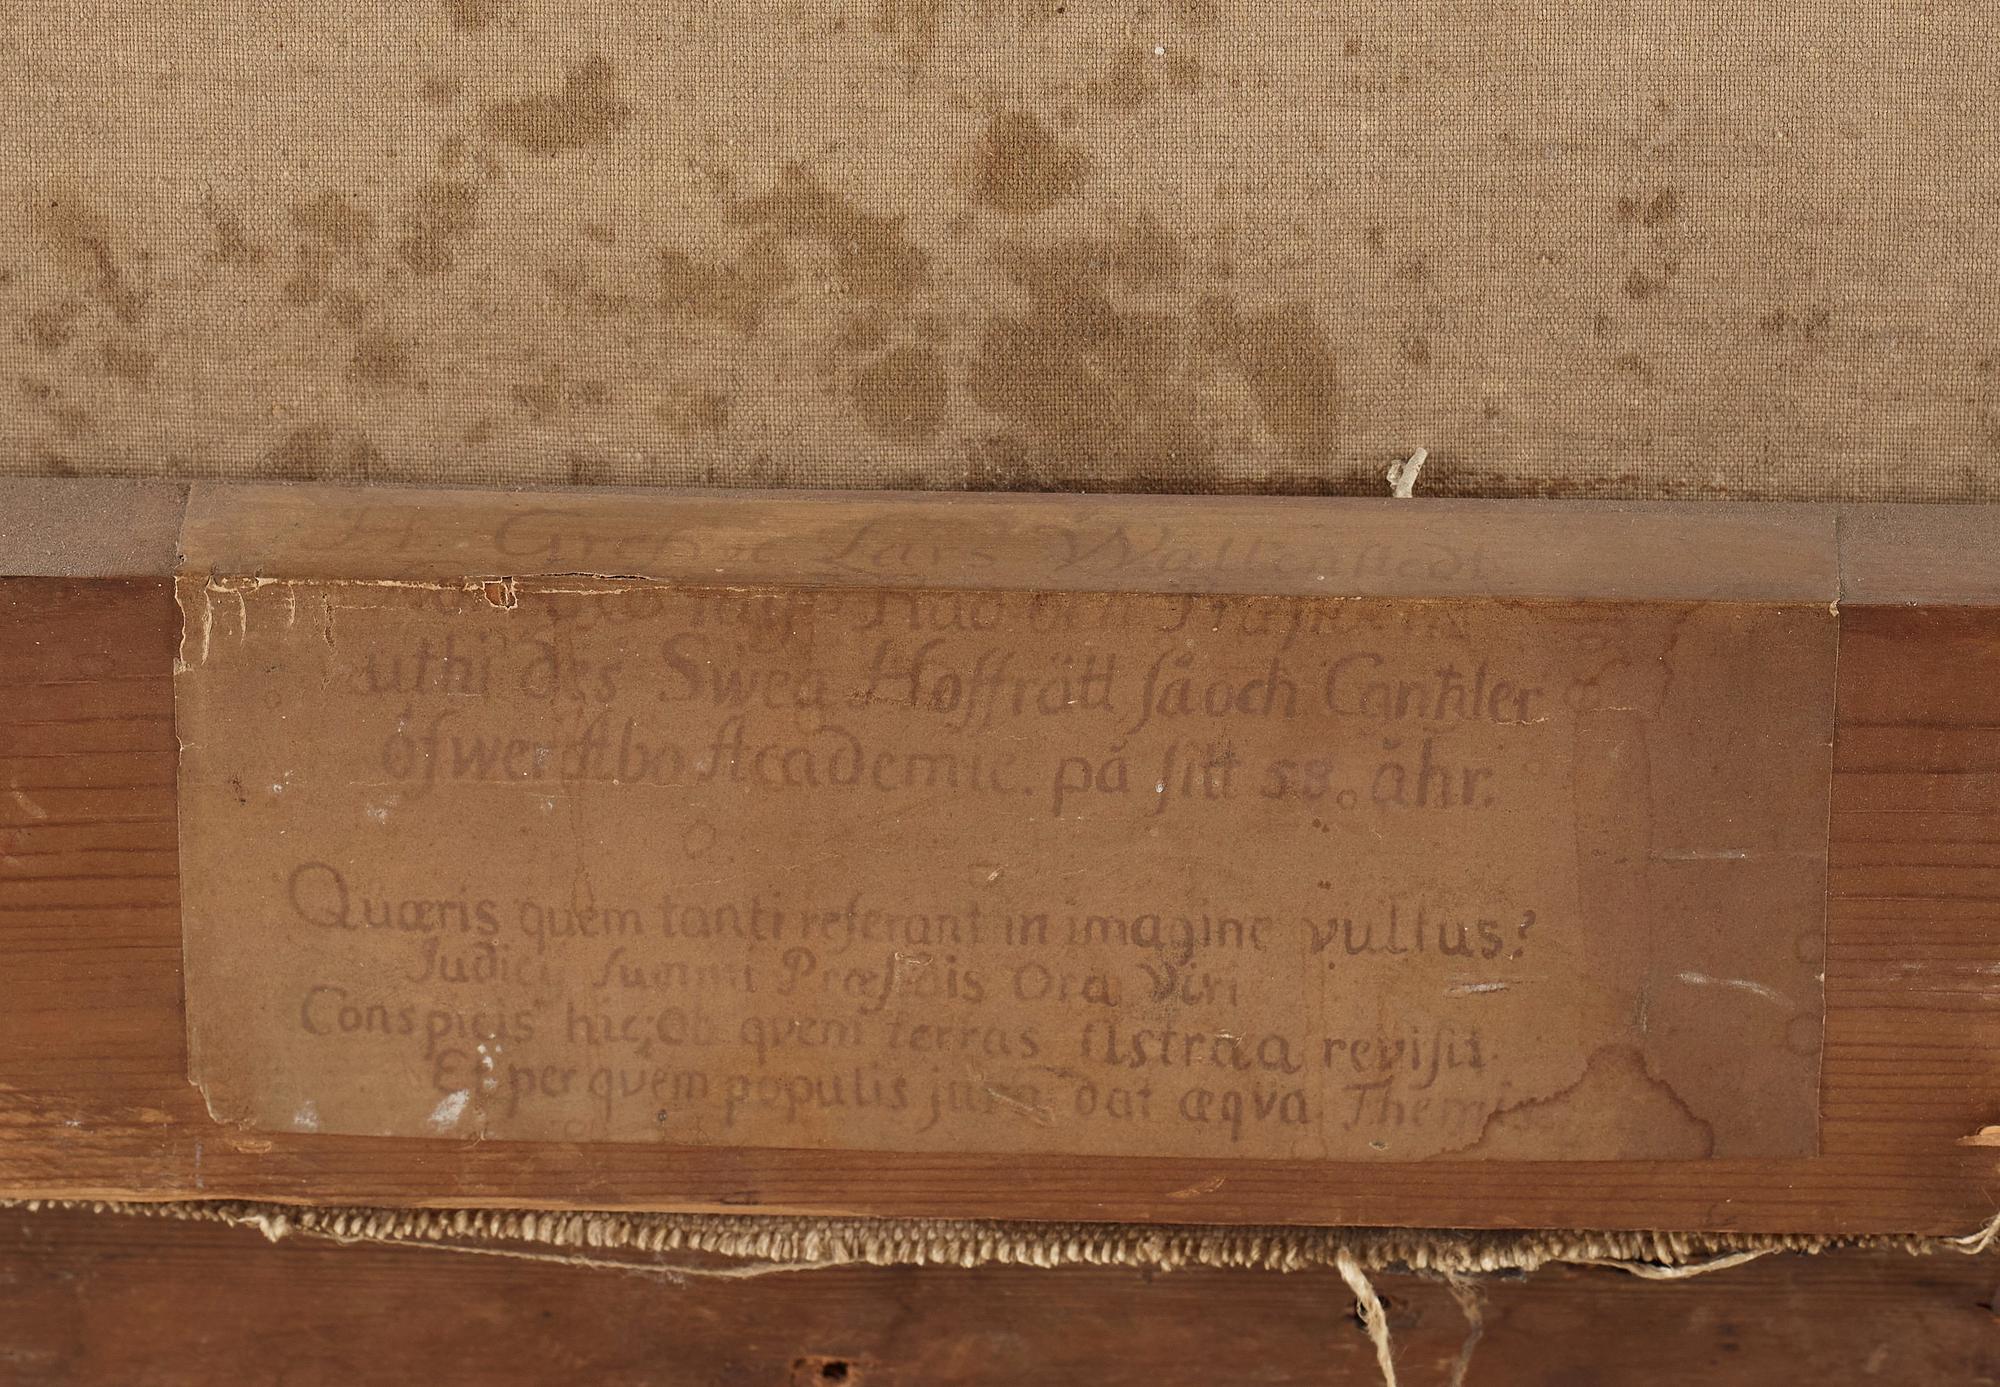 H. Grefwe Lars Wallenstedt
Kongl. Råd och Præsident
uthi des Swea Hoffrätt så och Cantzler
öfwer Åbo Academie. på sitt 58. åhr.
Quæris quem tanti referant in imagine vultus?
Judicij summi Præsidis Ora Viri
Conspicis hic; Et qvem terras Astræa revisit
Et per qvem populis jura dat æqva Themis.